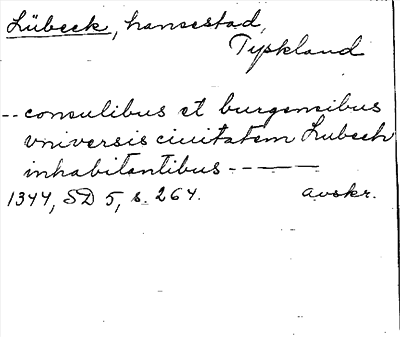 Lübeck, hansestad,
Tyskland
-- consulibus et burgensibus
vniversis ciuitatem Lubech
inhabitantibus -----
1344, SD 5, s. 264. avskr.